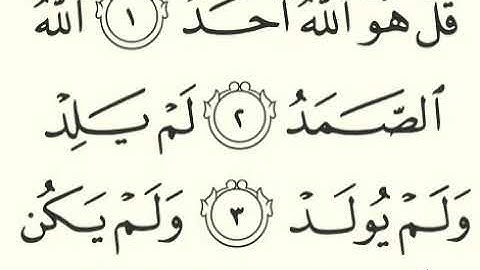 قُلْ هُوَ اللَّهُ أَحَدٌ ١ اللَّهُ
الصَّمَدُ ٢ لَمْ يَلِدْ
وَلَمْ يُولَدْ ٣ وَلَمْ يَكُن